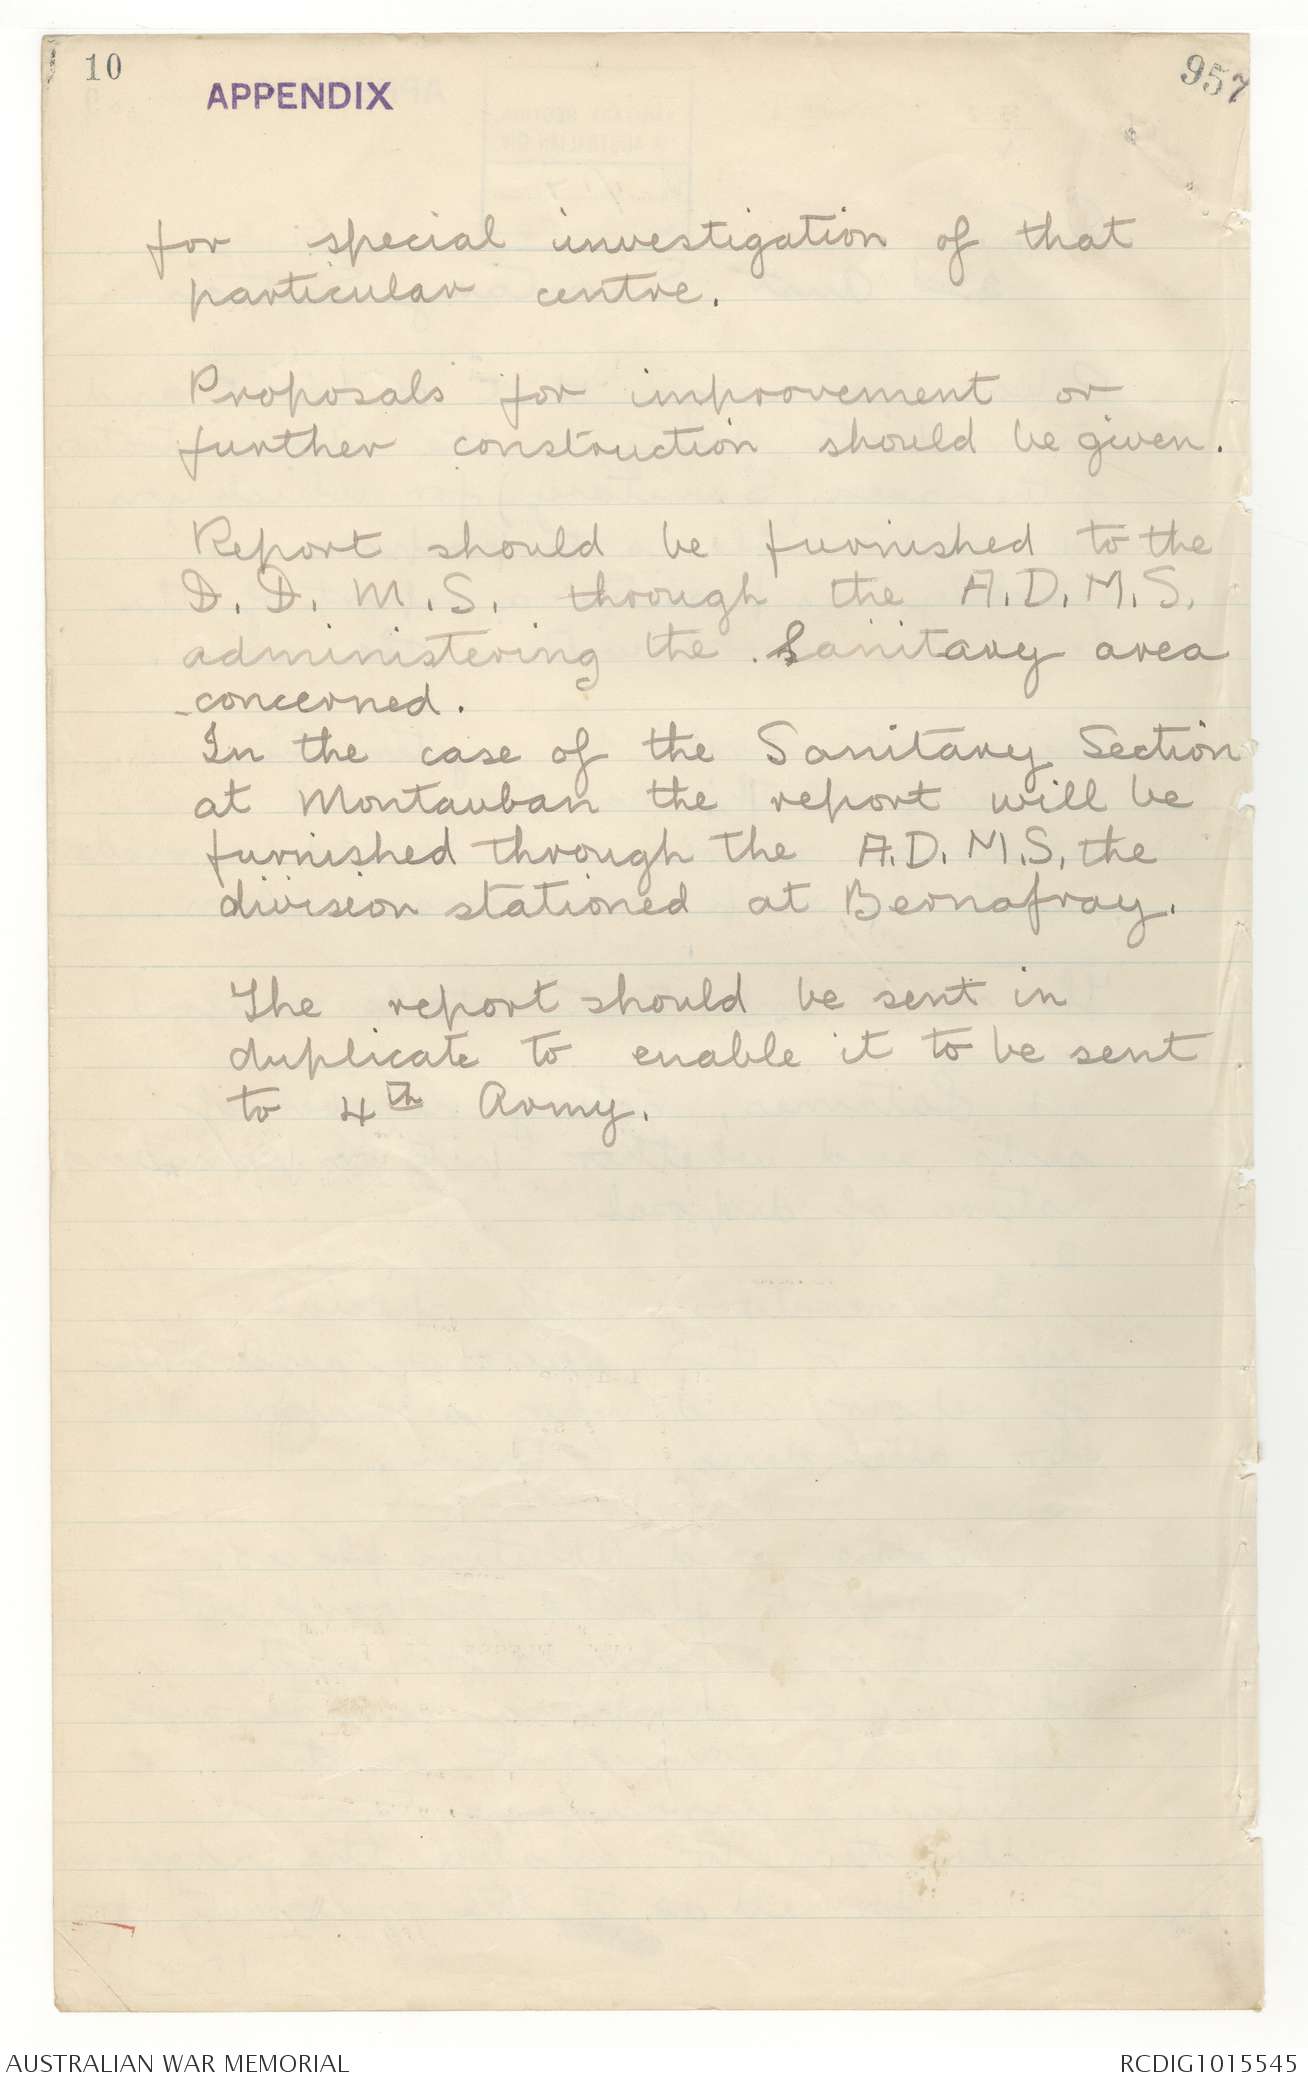 10
APPENDIX
957
for special investigation of that
particular centre.
Proposals for improvement or
further construction should be given.
Report should be furnished to the
D. D. M. S. through the A. D. M. S.
administering the Sanitary area
concerned.
In the case of the Sanitary Section
at Montauban the report will be
furnished through the A. D. M. S, the
division stationed at Bernafray.
The report should be sent in
duplicate to enable it to be sent
to 4th Army.
AUSTRALIAN WAR MEMORIAL
RCDIG1015545